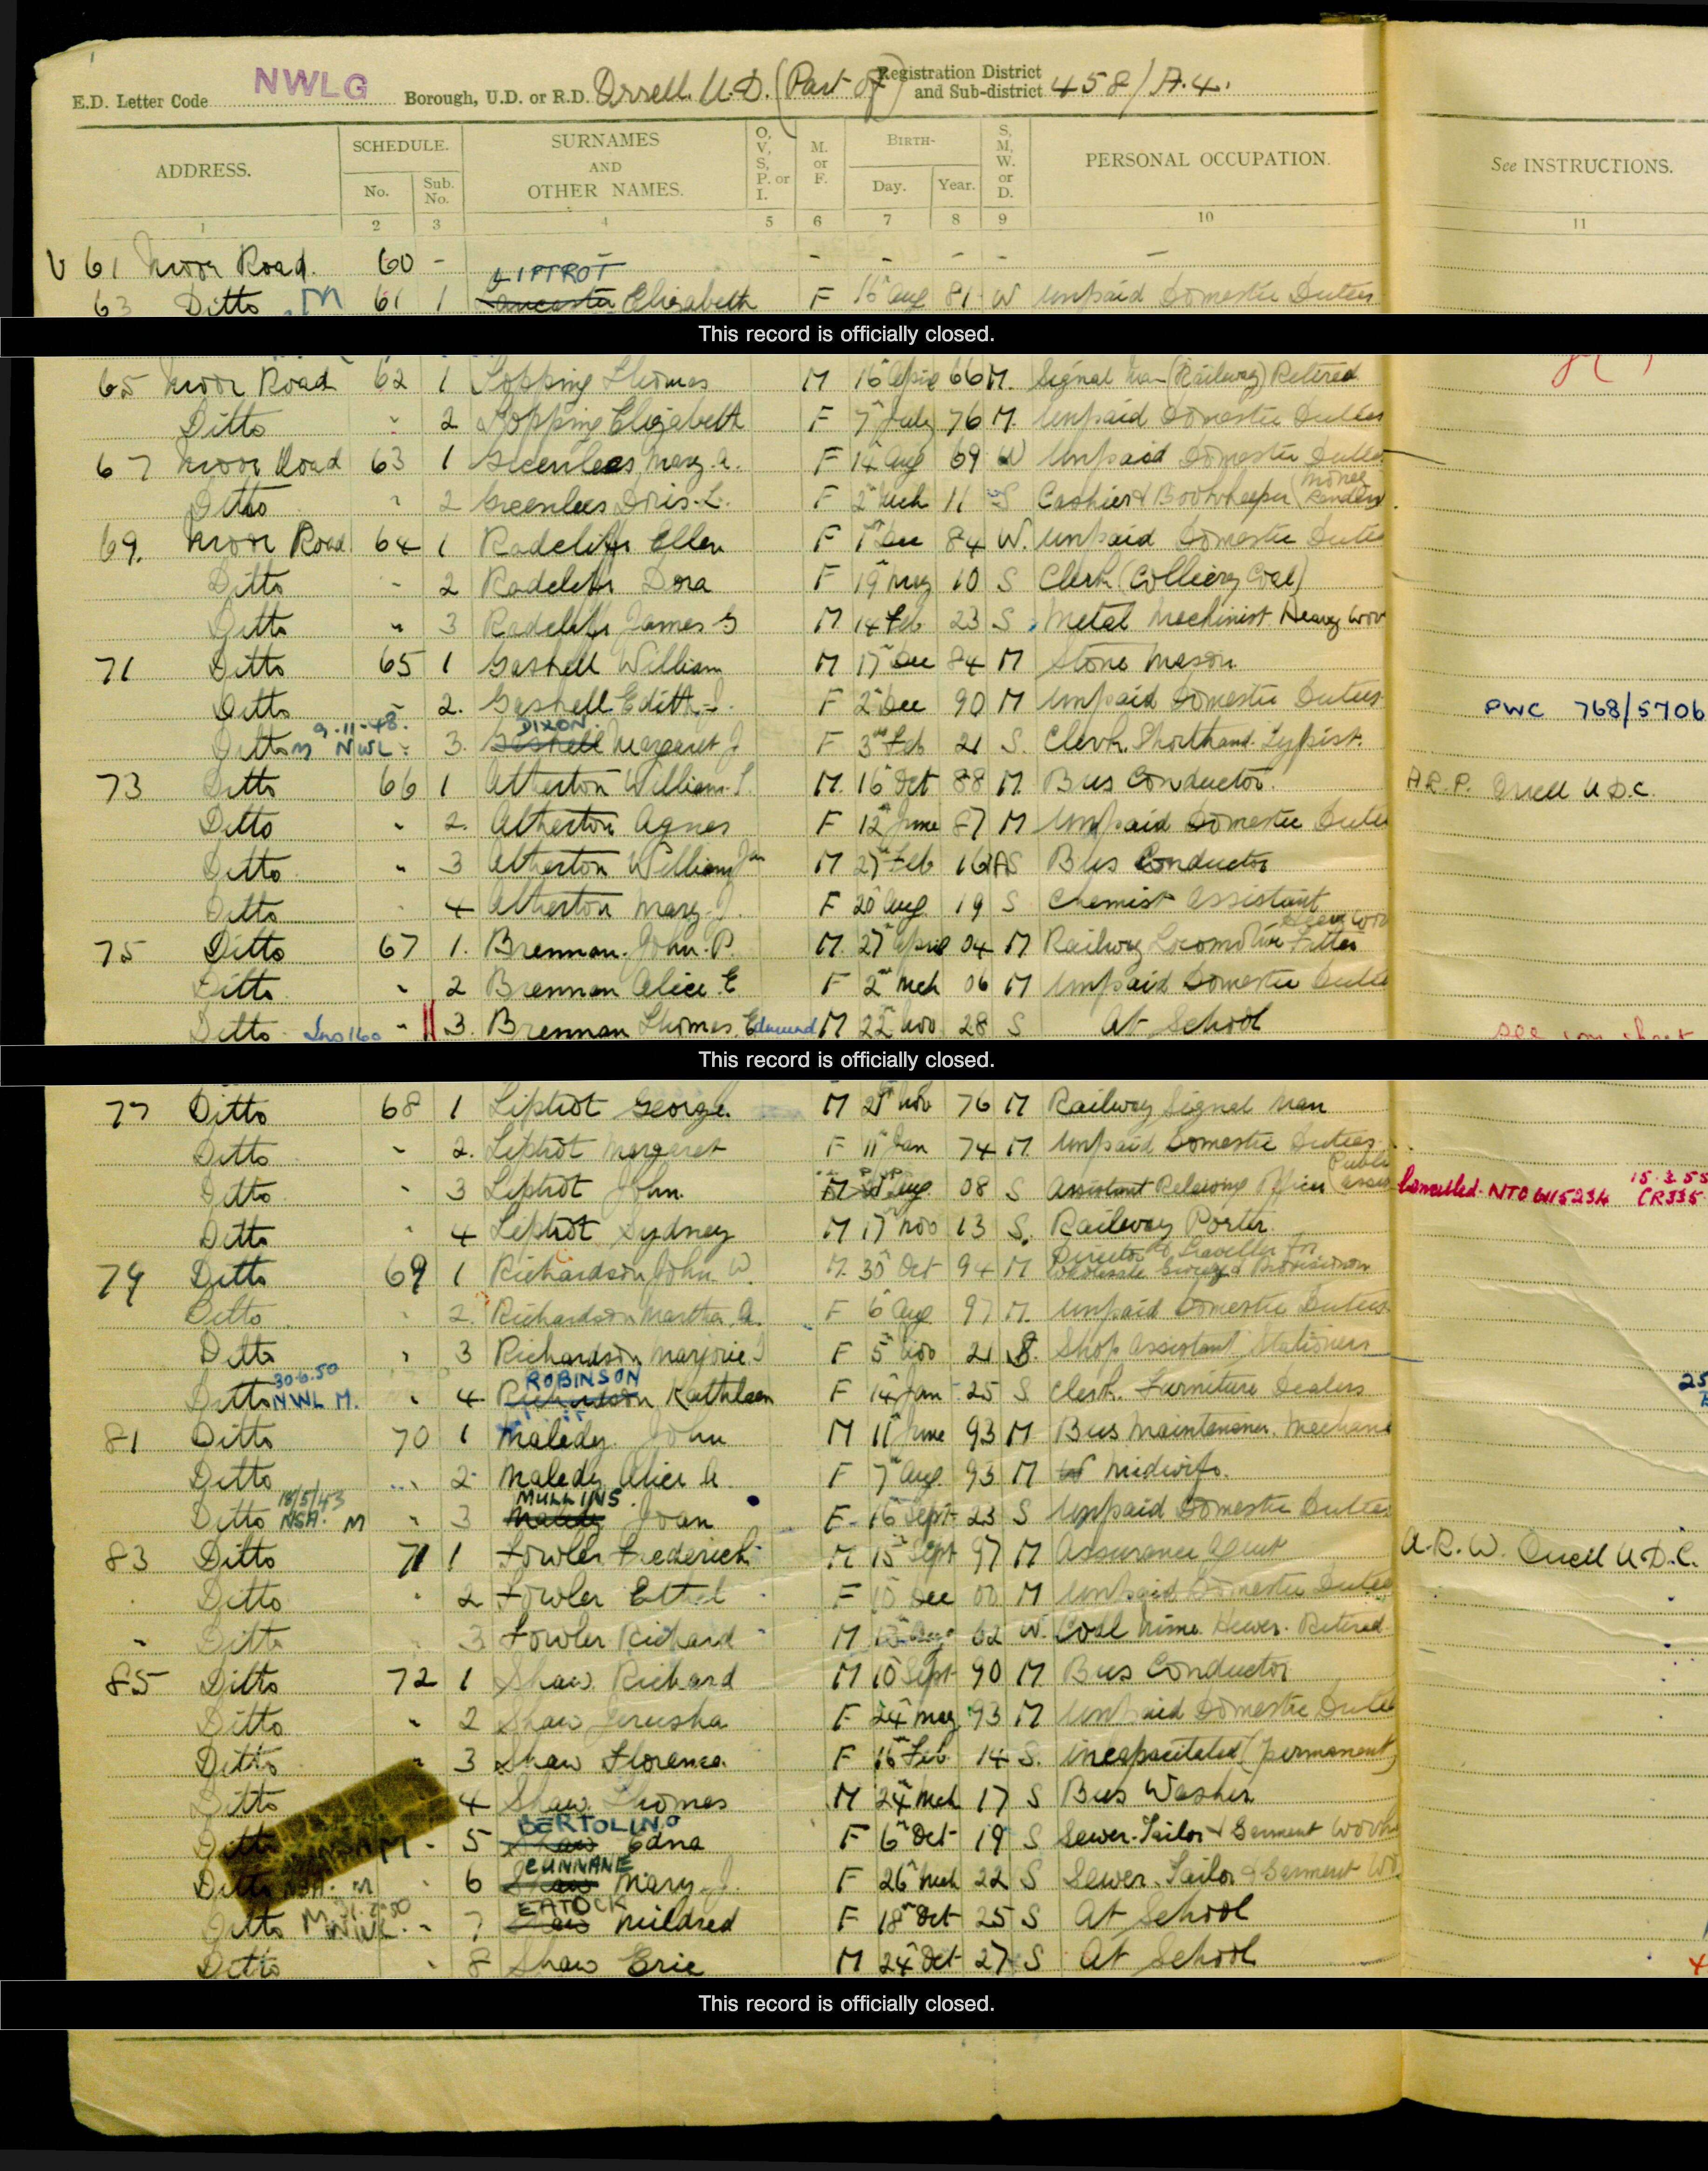 E.D. Letter Code NWLG Borough, U.D. or R.D. Orrell U.D. (Part of) Registration District and Sub-district 458/A.4.
ADDRESS. SCHEDULE. No. Sub. No. SURNAMES AND OTHER NAMES. O, V, S, P. or I. M. or F. BIRTH- Day. Year. S, M, W. or D. PERSONAL OCCUPATION. See INSTRUCTIONS.
1 2 3 4 5 6 7 8 9 10 11
V 61 Moor Road. 60 - - - - - -
LIPTROT
63 Ditto M 61 1 Elizabeth F 16 Aug 81 W Unpaid Domestic Duties
This record is officially closed.
65 Moor Road 62 1 Topping Thomas M 16 April 66 M. Signal Man (Railway) Retired
Ditto " 2 Topping Elizabeth F 7 July 76 M. Unpaid Domestic Duties
67 Moor Road 63 1 Greenlees Mary. A. F 14 Aug 69 W Unpaid Domestic Duties
Ditto " 2 Greenlees Doris. L. F 2 Mch 11 S Cashier & Bookkeeper (Money
69. Moor Road 64 1 Radcliffe Ellen F 1 Dec 84 W. Unpaid Domestic Duties
Ditto " 2 Radcliffe Dora F 19 May 10 S Clerk (Colliery Coal)
Ditto " 3 Radcliffe James G M 14 Feb 23 S Metal Machinist Heavy Work
71 Ditto 65 1 Gaskell William M 17 Dec 84 M Stone Mason
Ditto " 2. Gaskell Edith F 2 Dec 90 M Unpaid Domestic Duties PWC 768/5706
9-11-48. DIXON.
Ditto M NWL " 3. Gaskell Margaret J F 3 Feb 21 S. Clerk. Shorthand Typist.
73 Ditto 66 1 Atherton William. M. 16 Oct 88 M Bus Conductor. A.R.P. Orrell U.D.C.
Ditto " 2. Atherton Agnes F 12 June 87 M Unpaid Domestic Duties
Ditto " 3 Atherton William Jnr M 27 Feb 16 S Bus Conductor
Ditto " 4 Atherton Mary. J. F 20 Aug 19 S Chemist Assistant
Heavy Work
75 Ditto 67 1. Brennan. John. P. M. 27 April 04 M Railway Locomotive Fitter
Ditto " 2 Brennan Alice. E F 2 Mch 06 M Unpaid Domestic Duties
Ditto " 3. Brennan Thomas. Edmund M 22 Nov 28 S At School
This record is officially closed.
77 Ditto 68 1 Liptrot George. M 21 Nov 76 M Railway Signal Man
Ditto " 2. Liptrot Margaret F 11 Jan 74 M. Unpaid Domestic Duties
Ditto " 3 Liptrot John. M Aug 08 S Assistant Relieving Officer (Public Assis Cancelled. 15.3.55
Ditto " 4 Liptrot Sydney M 17 Nov 13 S. Railway Porter.
79 Ditto 69 1 Richardson John. W. M. 30 Oct 94 M Director & Traveller for Wholesale Grocery & Provisions
Ditto " 2. Richardson Martha. A. F 6 Aug 97 M. Unpaid Domestic Duties
Ditto " 3 Richardson Marjorie. F 5 Nov 21 S. Shop Assistant Stationers
30.6.50 ROBINSON
Ditto NWL M. " 4 Richardson Kathleen F 14 Jan 25 S Clerk. Furniture Dealers 25
81 Ditto 70 1 Maledy. John M 11 June 93 M Bus Maintenance. Mechanic
Ditto " 2. Maledy Alice A F 7 Aug. 93 M Midwife.
18/5/43 MULLINS.
Ditto NSA. M " 3 Maledy Joan F. 16 Sept 23 S Unpaid Domestic Duties
83 Ditto 71 1 Fowler Frederick M 15 Sept 97 M Assurance Agent A.R.W. Orrell U.D.C.
Ditto " 2 Fowler Ethel F 10 Dec 00 M Unpaid Domestic Duties
" Ditto 3 Fowler Richard M Aug 62 W. Coal Mine Hewer. Retired.
85 Ditto 72 1 Shaw Richard M 10 Sept 90 M Bus Conductor
Ditto " 2 Shaw Jerusha F 24 May 93 M Unpaid Domestic Duties
Ditto " 3 Shaw Florence. F 16 Feb 14 S. Incapacitated (permanent)
Ditto 4 Shaw Thomas M 24 Mch 17 S Bus Washer
BERTOLINO
Ditto M " 5 Shaw Edna F 6 Oct 19 S Sewer. Tailor & Garment Work
CUNNANE
Ditto NSA. M " 6 Shaw Mary. J. F 26 Mch 22 S Sewer. Tailor & Garment
EATOCK
Ditto M NWL. " 7 Shaw Mildred F 18 Oct 25 S At School
Ditto " 8 Shaw Eric M 24 Oct 27 S At School
This record is officially closed.